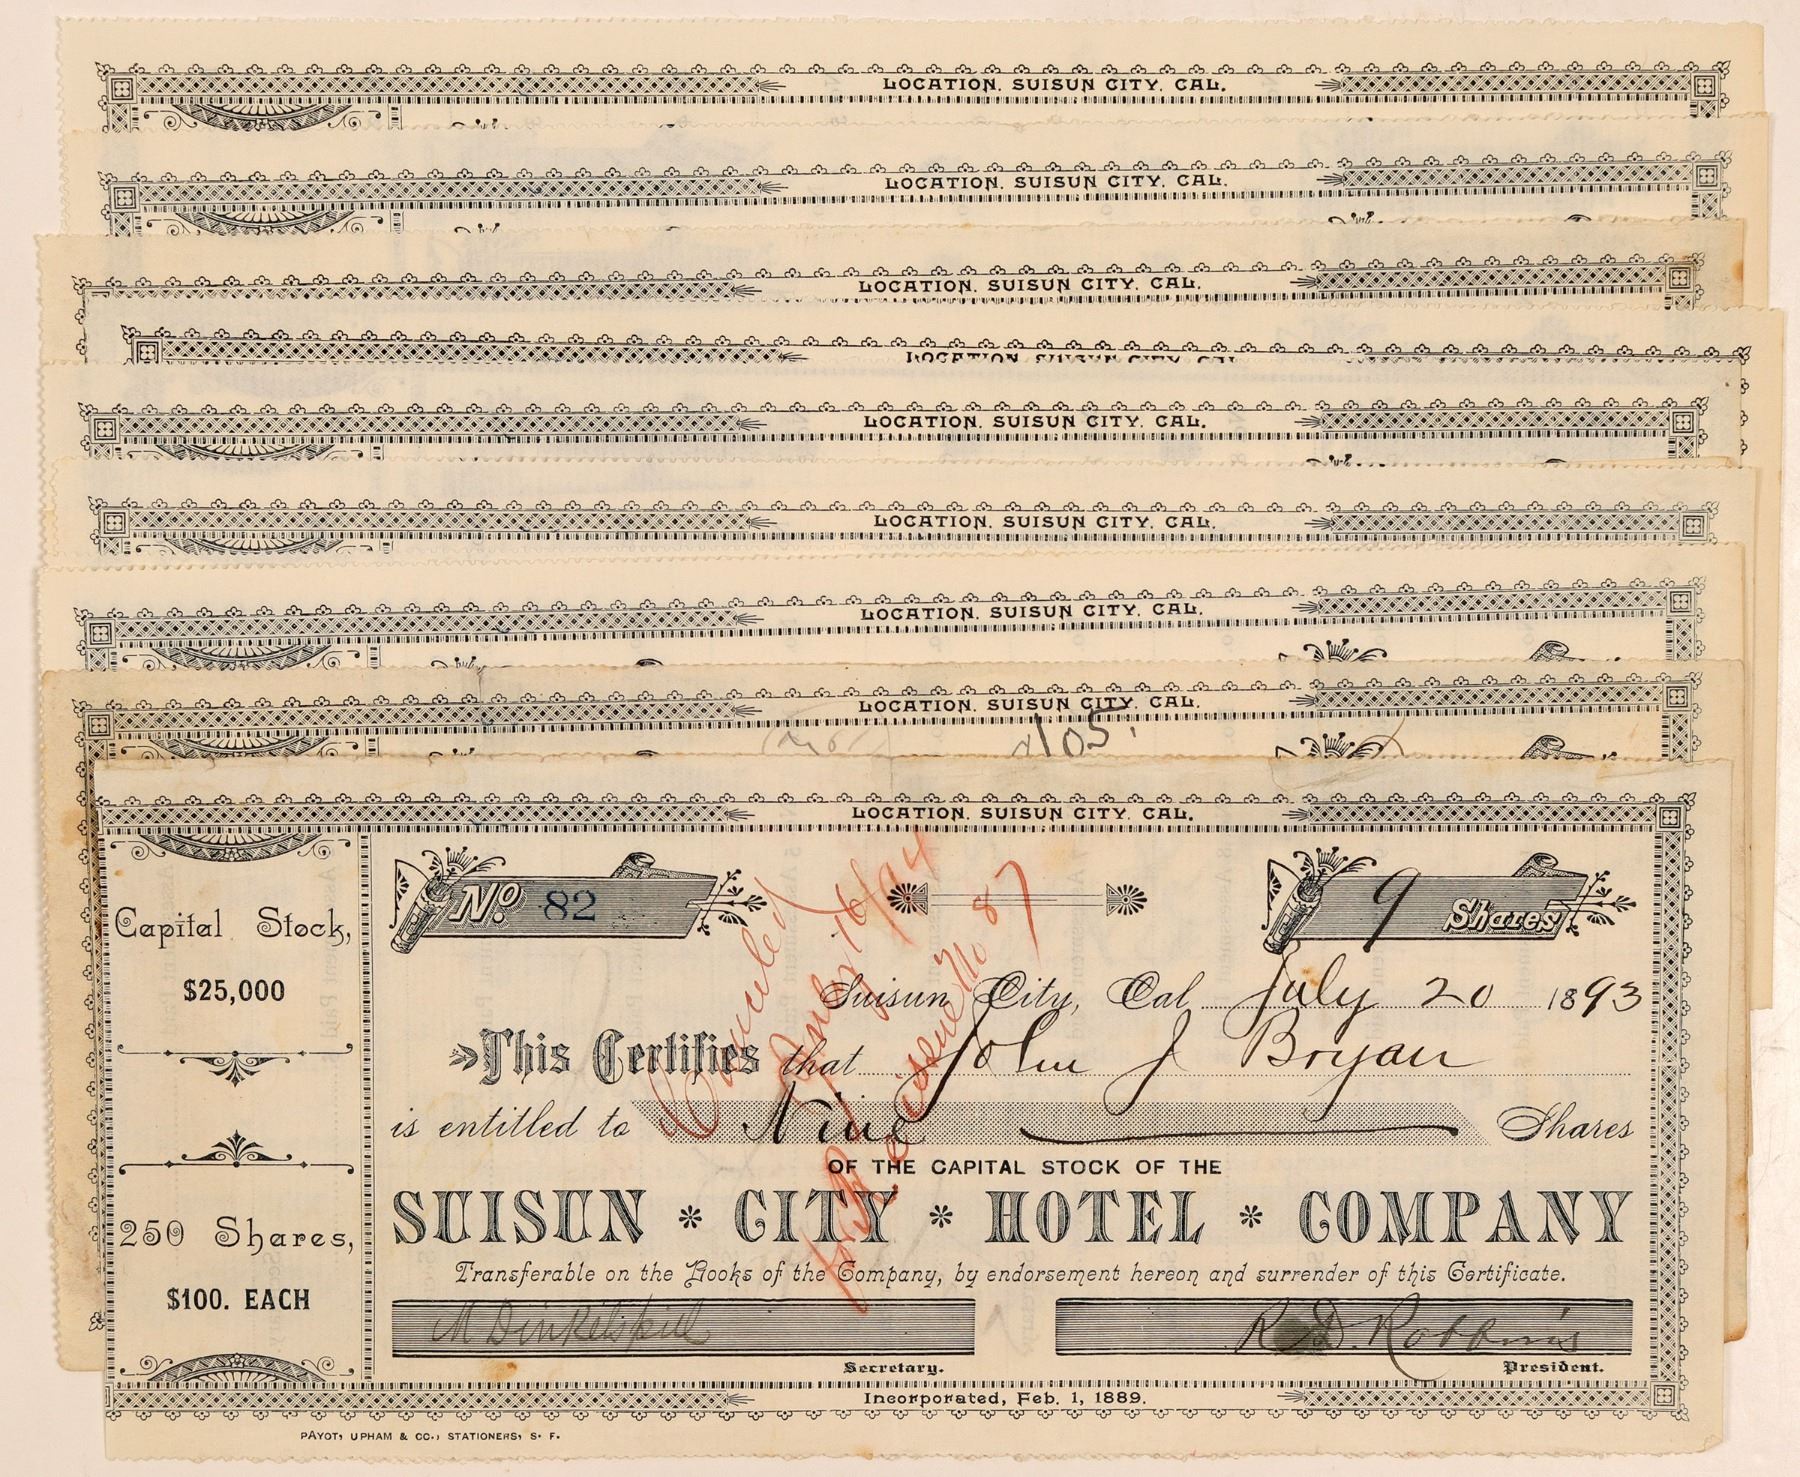 LOCATION. SUISUN CITY. CAL.
LOCATION. SUISUN CITY. CAL.
LOCATION. SUISUN CITY. CAL.
LOCATION. SUISUN CITY. CAL.
LOCATION. SUISUN CITY. CAL.
LOCATION. SUISUN CITY. CAL.
LOCATION. SUISUN CITY. CAL.
LOCATION. SUISUN CITY. CAL.
105.
LOCATION. SUISUN CITY. CAL.
No. 82
9 Shares
Capital Stock,
$25,000
250 Shares,
$100. EACH
Suisun City, Cal July 20 1893
This Certifies that John J Bryan
is entitled to Nine Shares
OF THE CAPITAL STOCK OF THE
SUISUN * CITY * HOTEL * COMPANY
Transferable on the Books of the Company, by endorsement hereon and surrender of this Certificate.
M Dinkelspiel
Secretary.
R. D. Robbins
President.
Incorporated, Feb. 1, 1889.
PAYOT, UPHAM & CO., STATIONERS, S. F.
Canceled
Reissue No 87